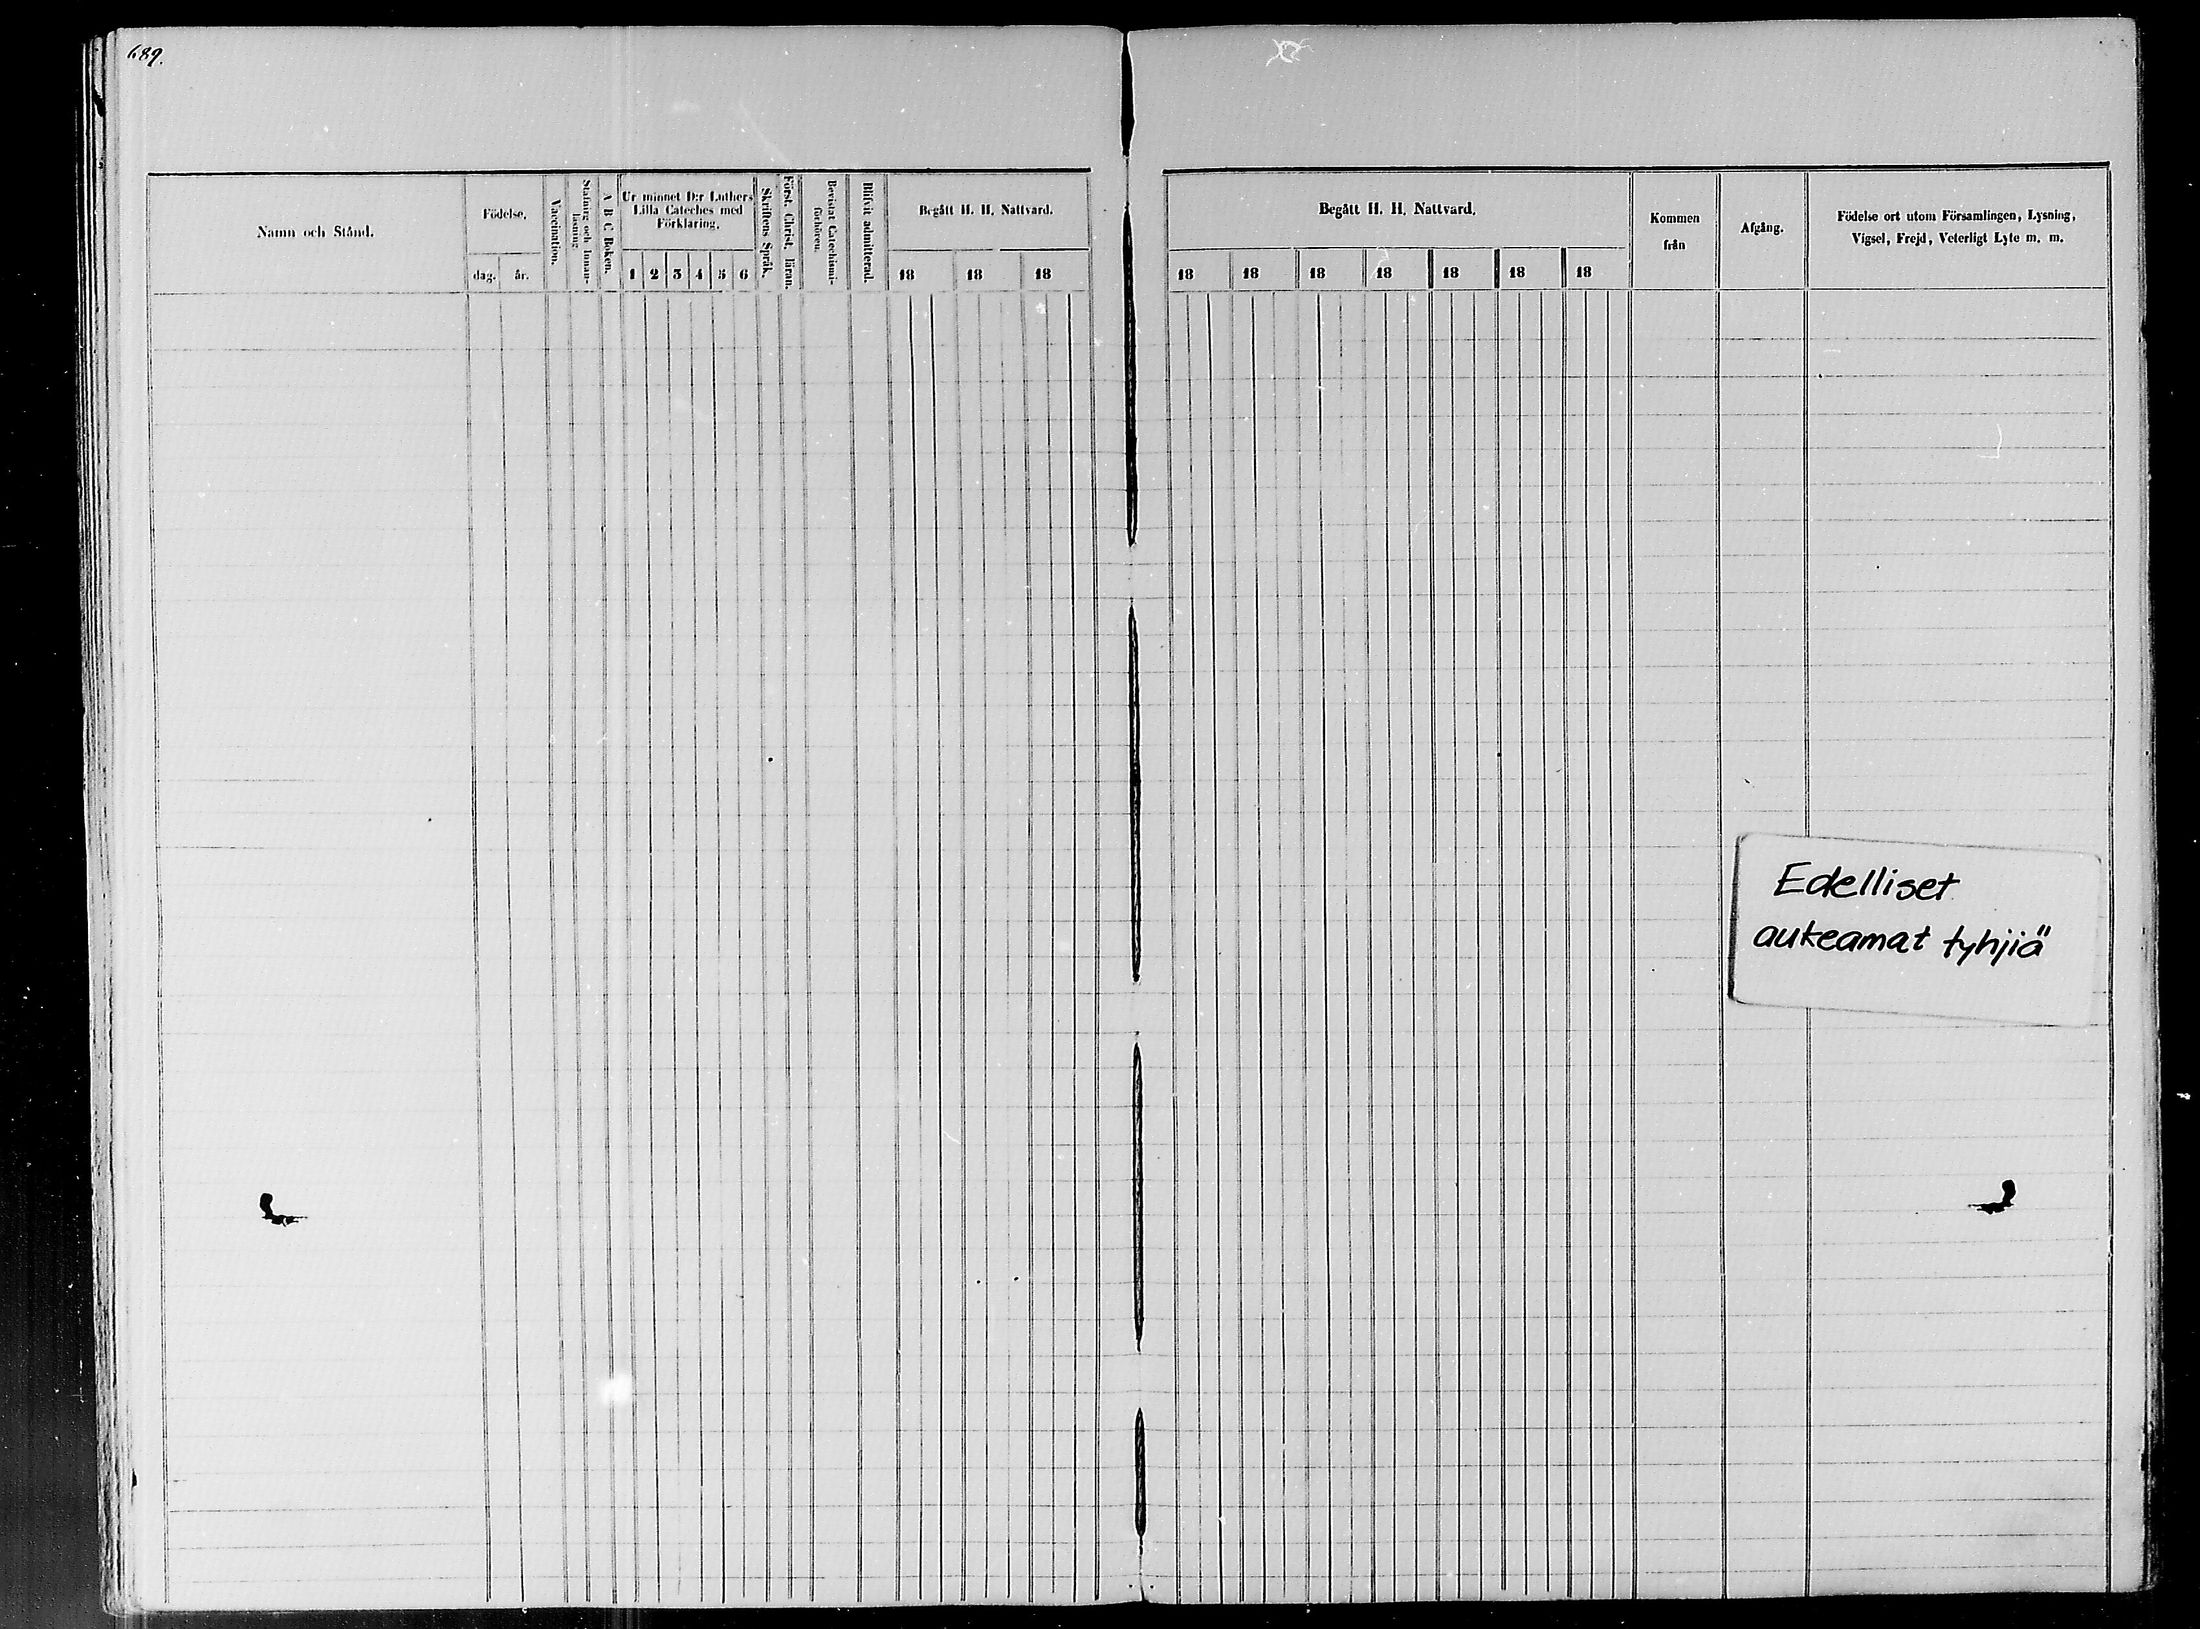 689.
Namn och Stånd.
Födelse.
dag.
år.
Vaccination.
Stafning och Innan-
läsning
A B C Boken.
Ur minnet D:r Luthers
Lilla Cateches med
Förklaring.
1 2 3 4 5 6
Skriftens Språk.
Först. Christ. läran.
Bevistat Catechismi-
förhören.
Blifvit admitterad.
Begått H. H. Nattvard.
18 18 18
Begått H. H. Nattvard.
18 18 18 18 18 18 18
Kommen
från
Afgång.
Födelse ort utom Församlingen, Lysning,
Vigsel, Frejd, Veterligt Lyte m. m.
Edelliset
aukeamat tyhjiä